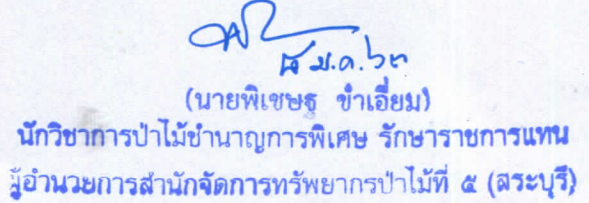 ม.ค. ๖๓
(นายพิเชษฐ ขำเอี่ยม)
นักวิชาการป่าไม้ชำนาญการพิเศษ รักษาราชการแทน
ผู้อำนวยการสำนักจัดการทรัพยากรป่าไม้ที่ ๕ (สระบุรี)